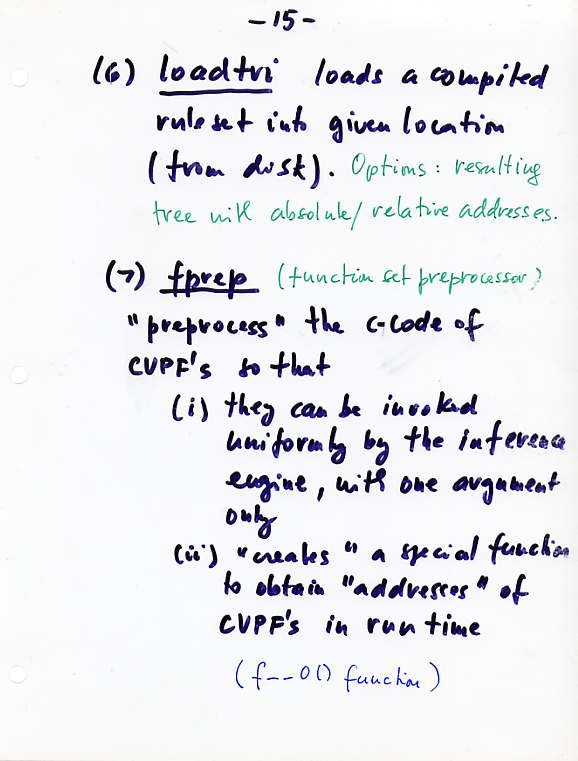 -15-
(6) loadtri loads a compiled
rule set into given location
(from disk). Options: resulting
tree with absolute/relative addresses.
(7) fprep (function set preprocessor)
"preprocess" the C-code of
CVPF's so that
(i) they can be invoked
uniformly by the inference
engine, with one argument
only
(ii) "creates" a special function
to obtain "addresses" of
CVPF's in run time
(f--0() function)